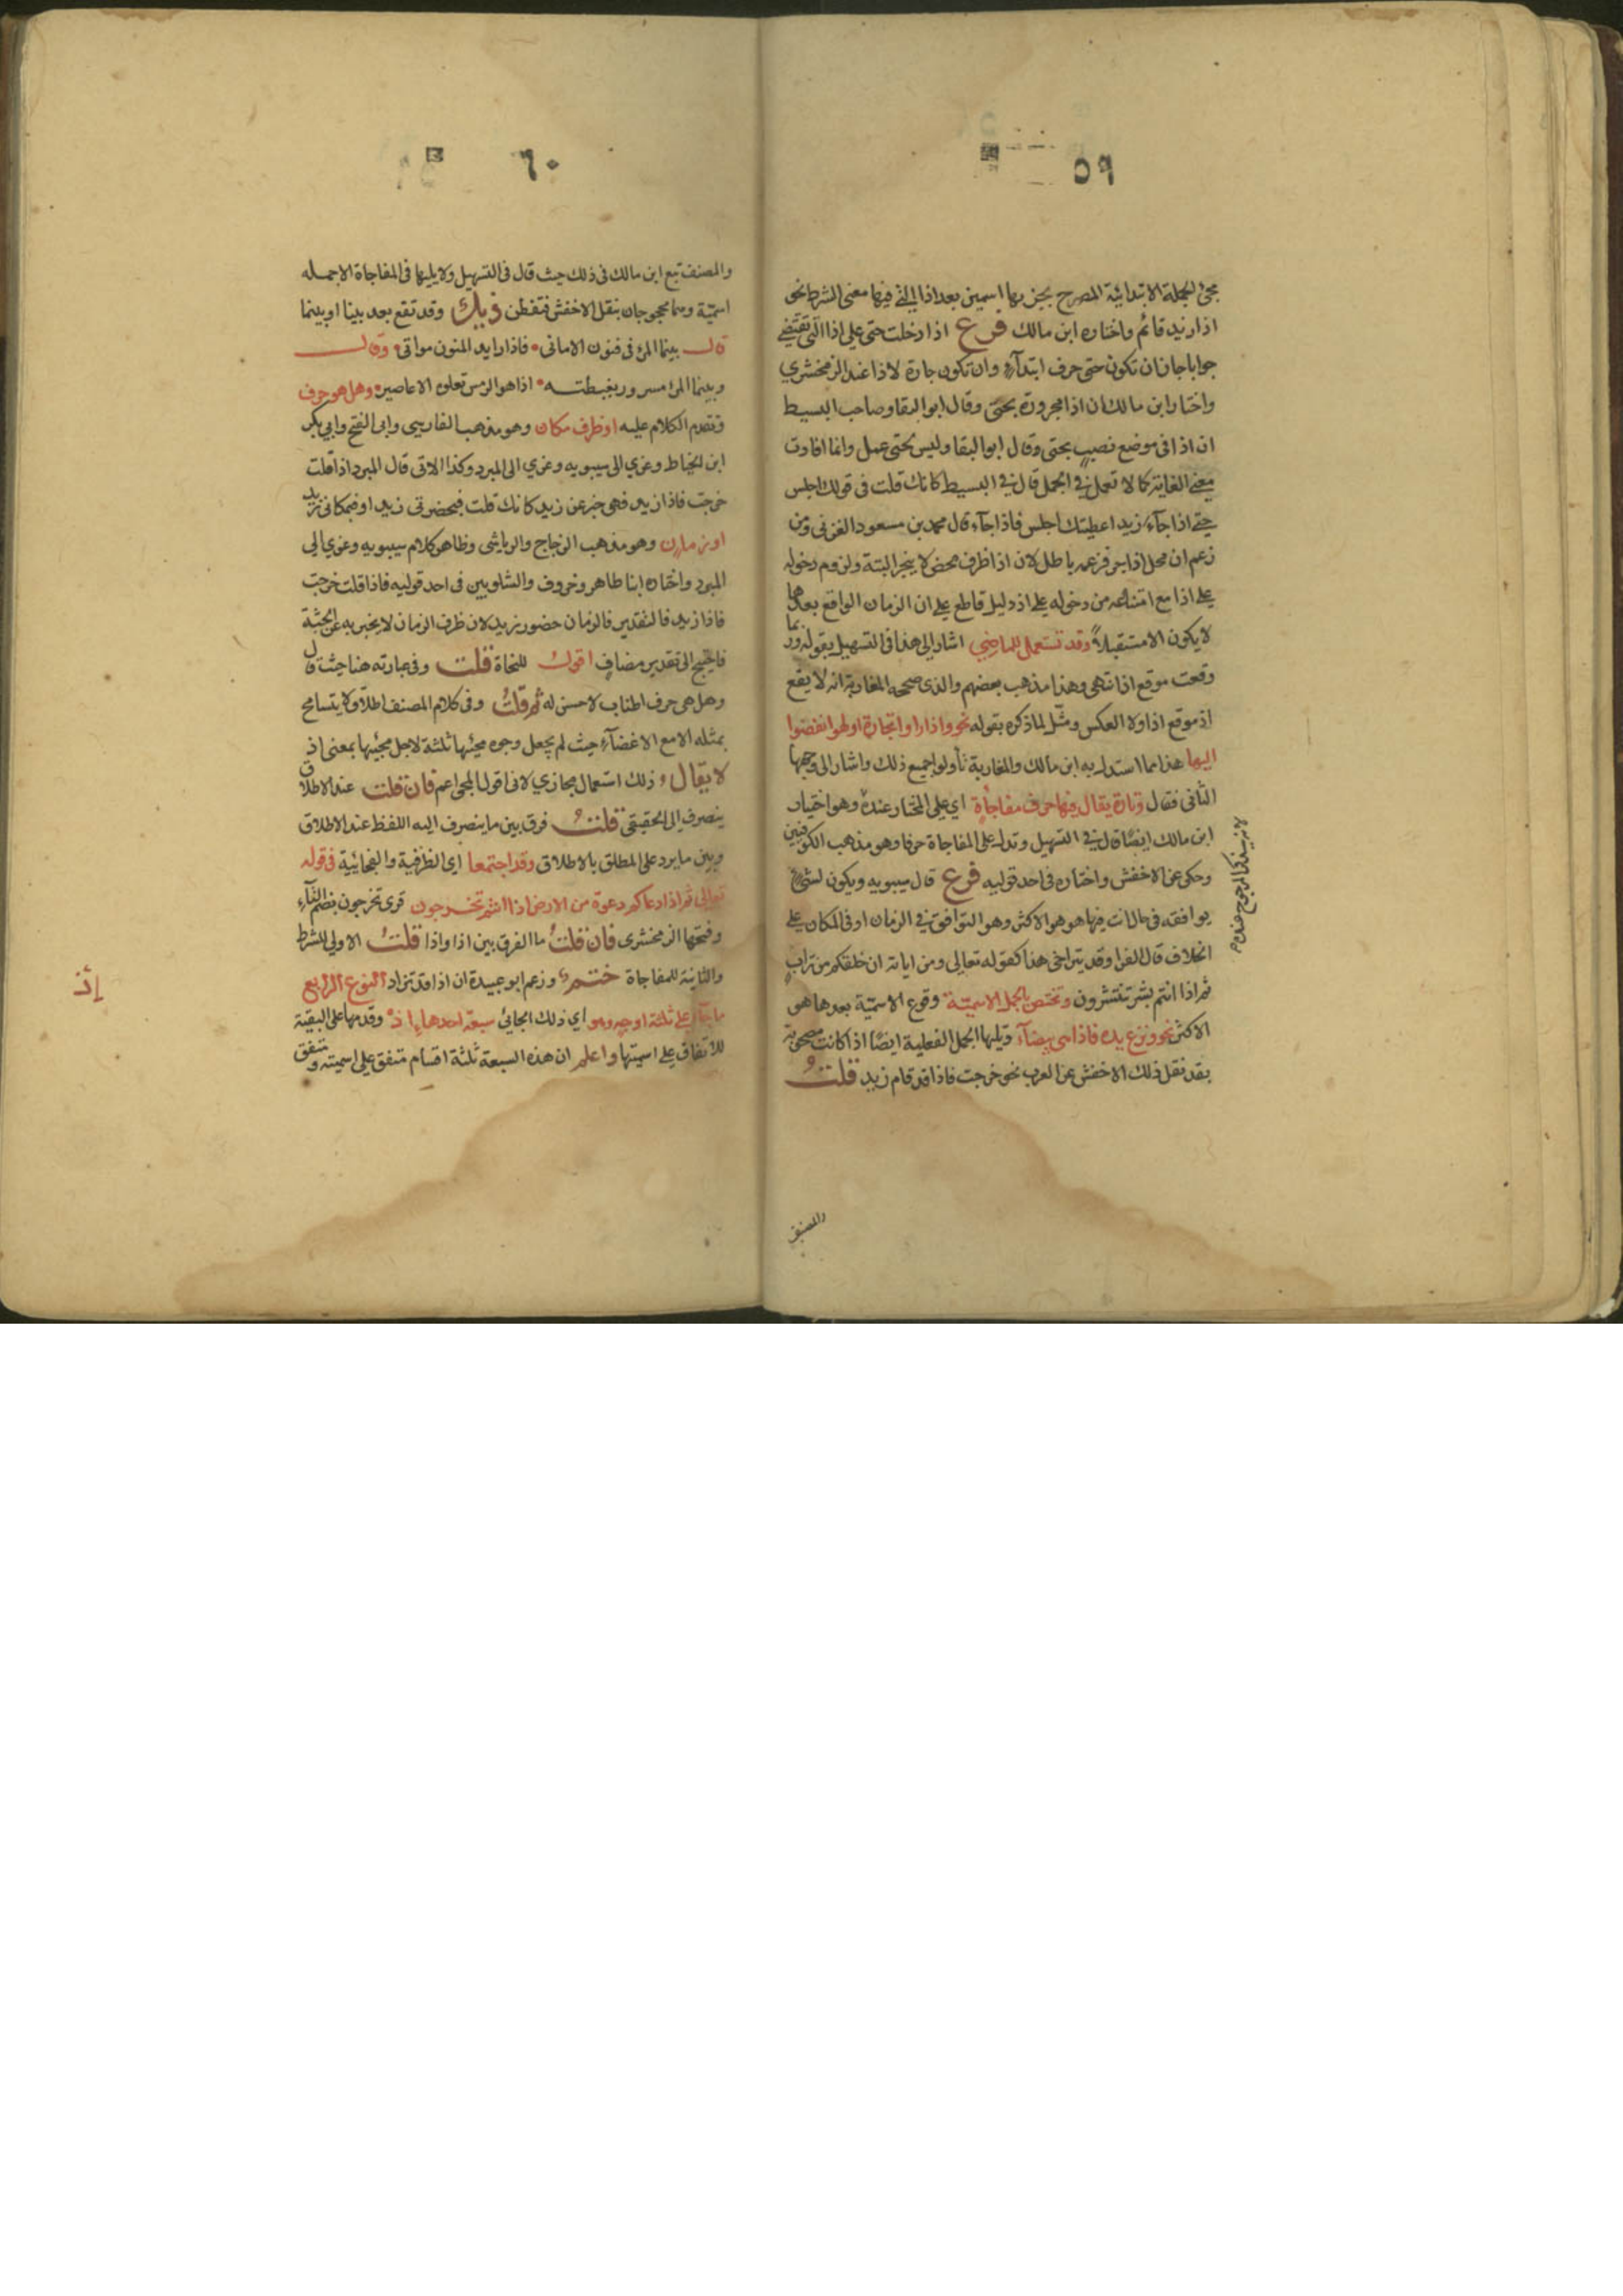 ٥٩
مجئ الجملة الابتدائية المصرح بجزءيها اسمين بعد اذا التي فيها معنى الشرط نحو
اذا زيد قائم واختاره ابن مالك فرع اذا دخلت حتى على اذا التي تقتضي
جوابا جاز ان تكون حتى حرف ابتدآء وان تكون جارة لاذا عند الزمخشري
واختار ابن مالك ان اذا مجرورة بحتى وقال ابو البقا وصاحب البسيط
ان اذا في موضع نصب بحتى وقال ابو البقا وليس لحتى عمل وانما افادت
معنى الغاية كما لا تعمل في الجمل قال في البسيط كانك قلت في قولك اجلس
حتى اذا جآء زيد اعطيتك اجلس فاذا جآء قال محمد بن مسعود الغزني ومن
زعم ان محل اذا جر فزعمه باطل لان اذا ظرف محض لا ينجر البتة ولزوم دخوله
على اذا مع امتناعه من دخوله على اذ دليل قاطع على ان الزمان الواقع بعدهما
لا يكون الا مستقبلاً وقد تستعمل للماضي اشار الى هذا في التسهيل بقوله وربما
وقعت موقع اذ انتهى وهذا مذهب بعضهم والذي صححه المغاربة انه لا يقع
اذ موقع اذا ولا العكس ومثّل لما ذكره بقوله نحو واذا راوا تجارة او لهوا انفضوا
اليها هذا مما استدل به ابن مالك والمغاربة تأولوا جميع ذلك واشار الى وجهها
الثاني فقال وتارة يقال فيها حرف مفاجأة اي على المختار عنده وهو اختيار
ابن مالك ايضًا قال في التسهيل وتدل على المفاجاة حرفا وهو مذهب الكوفيين
وحكي عن الاخفش واختاره في احد قوليه فرع قال سيبويه ويكون لشئ
يوافقه في حال انت فيها هو هو الاكثر وهو التوافق في الزمان او في المكان على
الخلاف قال الفرا وقد يتراخى هذا كقوله تعالى ومن اياته ان خلقكم من تراب
ثم اذا انتم بشر تنتشرون وتختص بالجمل الاسميّة وقوع الاسميّة بعدها هو
الاكثر نحو ونزع يده فاذا هي بيضآء وتليها الجمل الفعلية ايضًا اذا كانت مصحوبة
بقد نقل ذلك الاخفش عن العرب نحو خرجت فاذا قد قام زيد قلتُ
والمصنف
٦٠
والمصنف تبع ابن مالك في ذلك حيث قال في التسهيل ولا يليها في المفاجاة الا جمله
اسميّة وهما محجوجان بنقل الاخفش فتفطن ذيك وقد تقع بعد بينا او بينما
قال بينما المرء في فنون الاماني فاذا رايد المنون مواتي وقال
وبينما المرء مسرور بغبطته اذا هو الرمس تعلوه الاعاصير وهل هو حرف
وتقدم الكلام عليه او ظرف مكان وهو مذهب الفارسي وابي الفتح وابي بكر
ابن الخياط وعزي الى سيبويه وعزي الى المبرد وكذا الاتي قال المبرد اذا قلت
خرجت فاذا زيد فهي خبر عن زيد كانك قلت فبحضرتي زيد او فبمكاني زيد
او زمان وهو مذهب الزجاج والرياشي وظاهر كلام سيبويه وعزي الى
المبرد واختاره ابنا طاهر وخروف والشلوبين في احد قوليه فاذا قلت خرجت
فاذا زيد فالتقدير فالزمان حضور زيد لان ظرف الزمان لا يخبر به عن الجثة
فاحتيج الى تقدير مضاف اقول للنحاة قلت وفي عبارته هنا حيث قال
وهل هي حرف اطناب لا حسن له ثم قلت وفي كلام المصنف اطلاق لا يتسامح
بمثله الا مع الاغضآء حيث لم يجعل وجوه مجيئها ثلثة لاجل مجيئها بمعنى اذ
لا يقال ذلك استعمال مجازي لاني اقول المجئ اعم فان قلت عند الاطلاق
ينصرف الى الحقيقي قلت فرق بين ما ينصرف اليه اللفظ عند الاطلاق
وبين ما يرد على المطلق بالاطلاق وقد اجتمعا اي الظرفية والفجائية في قوله
تعالى ثم اذا دعاكم دعوة من الارض اذا انتم تخرجون قرئ تخرجون بضم التآء
وفتحها الزمخشري فان قلتُ ما الفرق بين اذا واذا قلتُ الاولى للشرط
والثانية للمفاجاة ختم وزعم ابو عبيدة ان اذا قد تزاد النوع الرابع
ما جآء على ثلثة اوجه وهو اي ذلك الجائي سبعة احدها إذ وقدمها على البقية
للاتفاق على اسميتها واعلم ان هذه السبعة ثلثة اقسام متفق على اسميته ومتفق
إذ